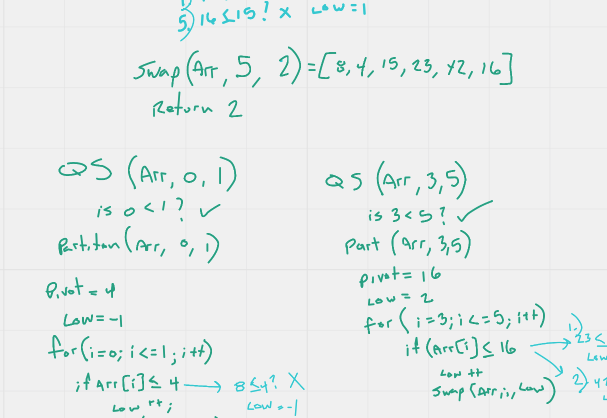 5.) 16 ≤ 15? X Low = 1
Swap (Arr, 5, 2) = [8, 4, 15, 23, 42, 16]
Return 2
QS (Arr, 0, 1)
is 0 < 1? ✓
Partiton (Arr, 0, 1)
Pivot = 4
Low = -1
for (i=0; i<=1; i++)
if Arr[i] ≤ 4 → 8 ≤ 4? X
Low ++; Low = -1
QS (Arr, 3, 5)
is 3 < 5? ✓
Part (Arr, 3, 5)
pivot = 16
Low = 2
for (i=3; i<=5; i++)
if (Arr[i] ≤ 16
Low ++
Swap (Arr, i, Low)
1.) 23 ≤
Low
2.)